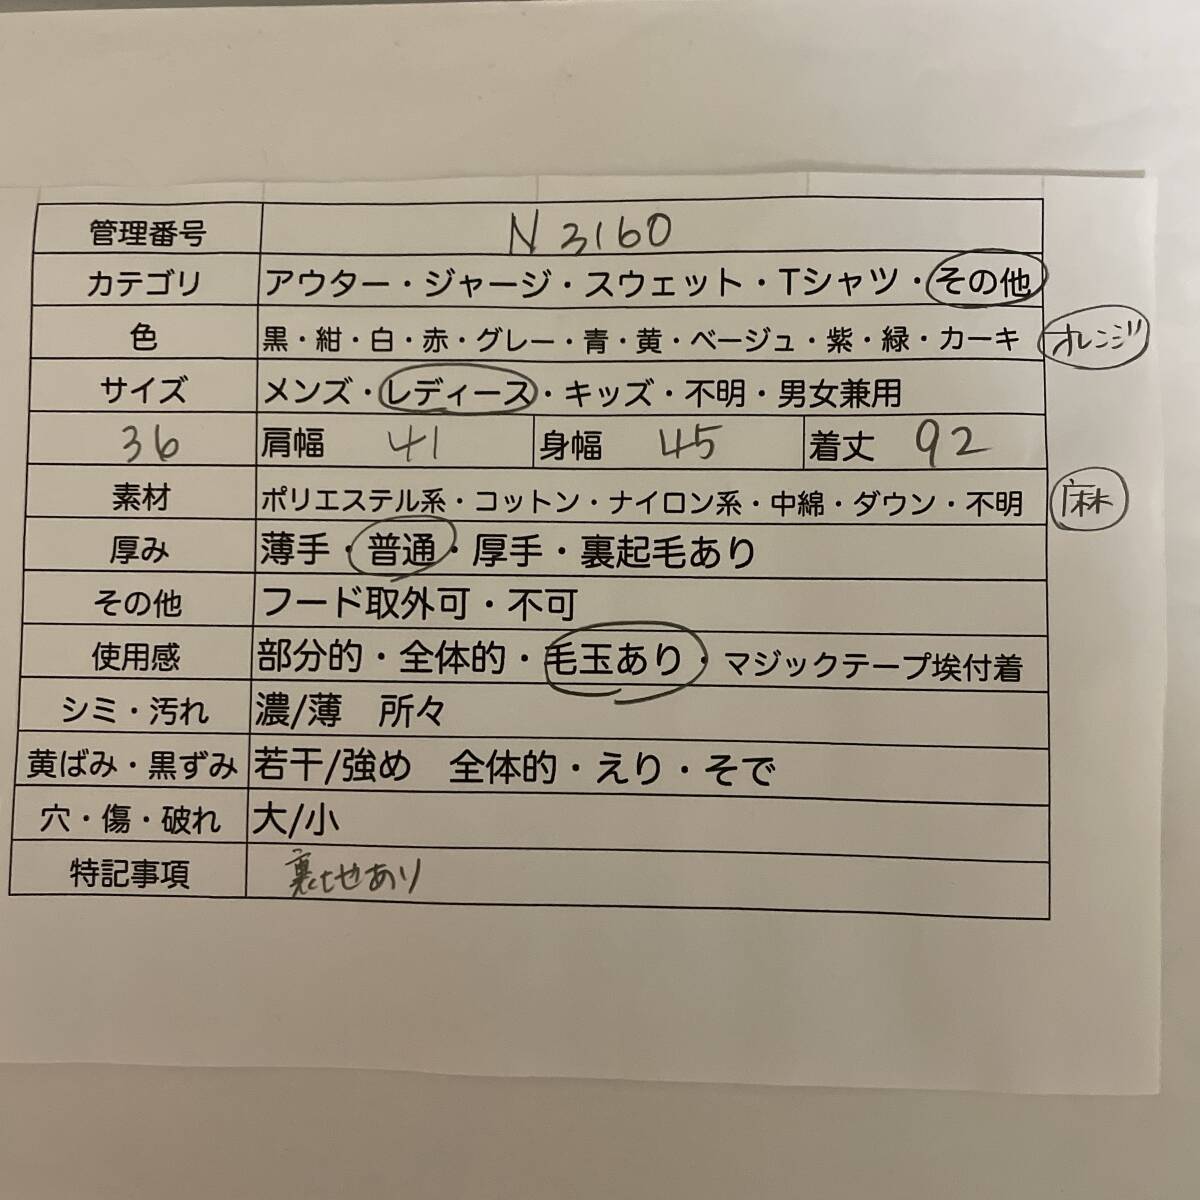 管理番号 N3160
カテゴリ アウター・ジャージ・スウェット・Tシャツ・その他
色 黒・紺・白・赤・グレー・青・黄・ベージュ・紫・緑・カーキ オレンジ
サイズ メンズ・レディース・キッズ・不明・男女兼用
36 肩幅 41 身幅 45 着丈 92
素材 ポリエステル系・コットン・ナイロン系・中綿・ダウン・不明 麻
厚み 薄手・普通・厚手・裏起毛あり
その他 フード取外可・不可
使用感 部分的・全体的・毛玉あり・マジックテープ埃付着
シミ・汚れ 濃/薄 所々
黄ばみ・黒ずみ 若干/強め 全体的・えり・そで
穴・傷・破れ 大/小
特記事項 裏地あり